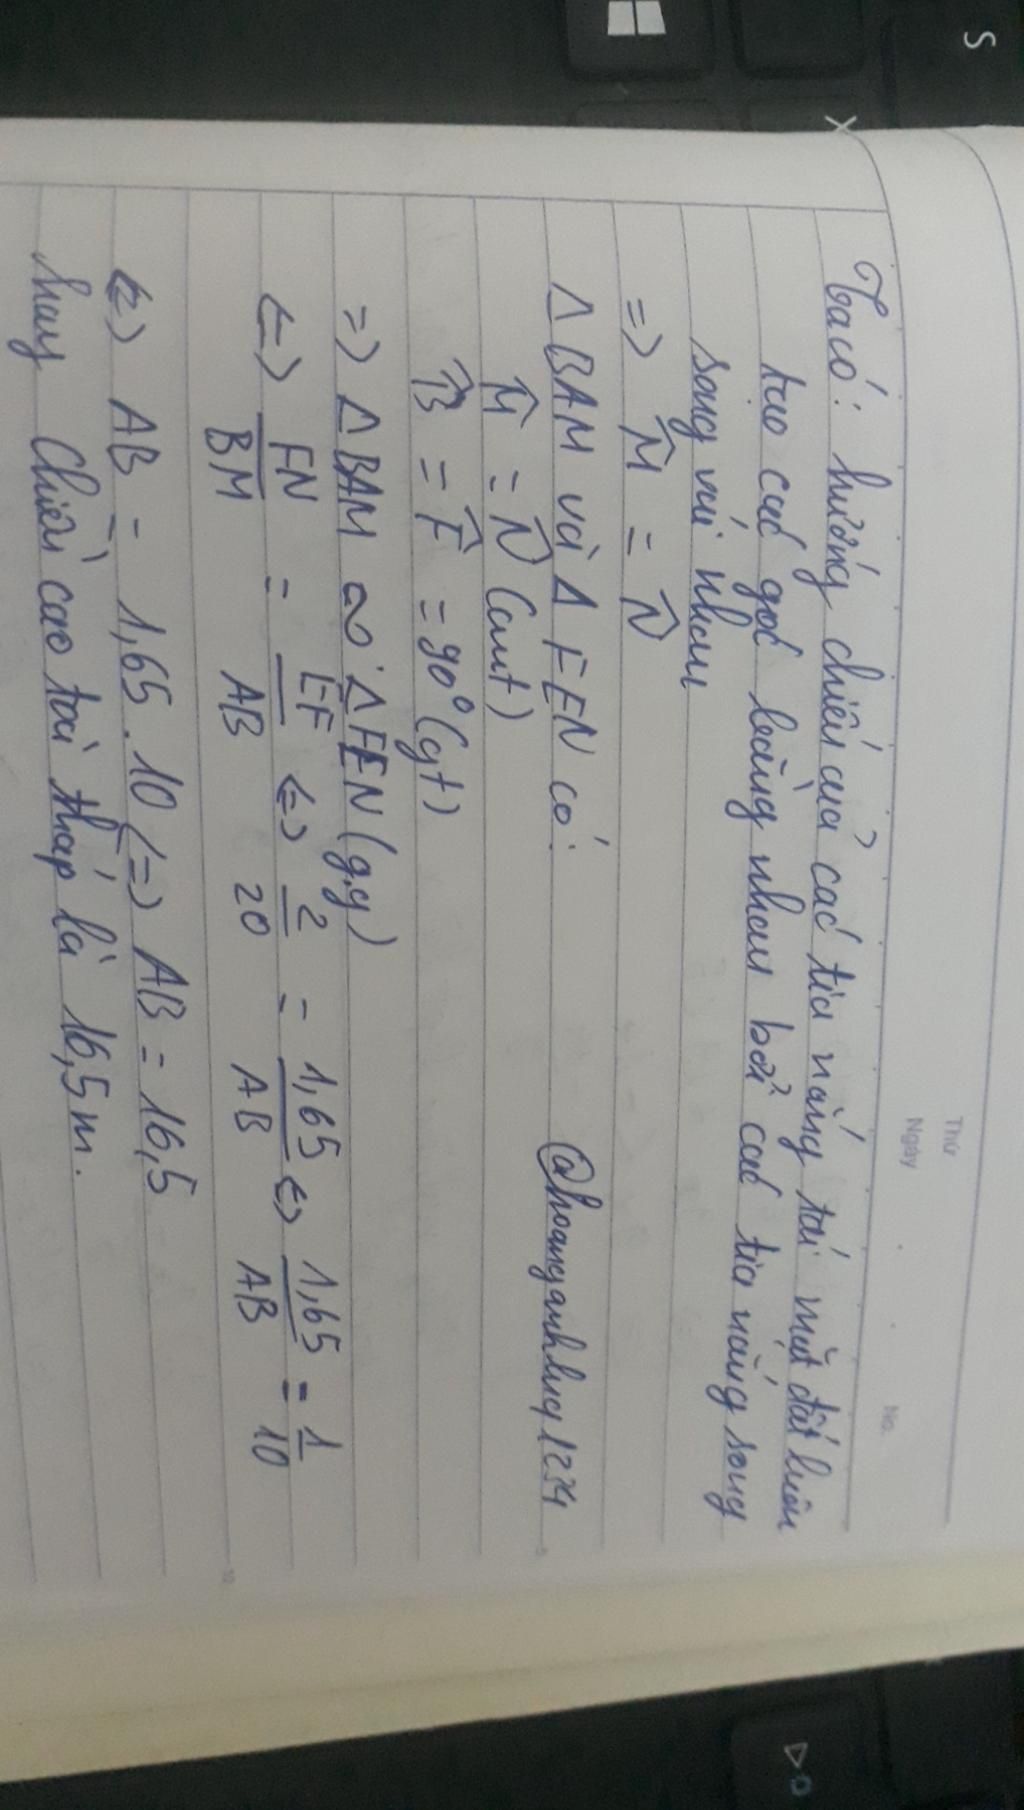 S
Thứ
Ngày
No.
Ta có: hướng chiếu của các tia nắng tới mặt đất luôn
tạo các góc bằng nhau bởi các tia nắng song
song với nhau
=> M̂ = N̂
Δ BAM và Δ FEN có:
@hoanganhhuy1234
M̂ = N̂ (cmt)
B̂ = F̂ = 90° (gt)
=> Δ BAM ∽ Δ FEN (g.g)
<=> FN/BM = EF/AB <=> 2/20 = 1,65/AB <=> 1,65/AB = 1/10
<=> AB = 1,65 . 10 <=> AB = 16,5
hay chiều cao toà tháp là 16,5m.